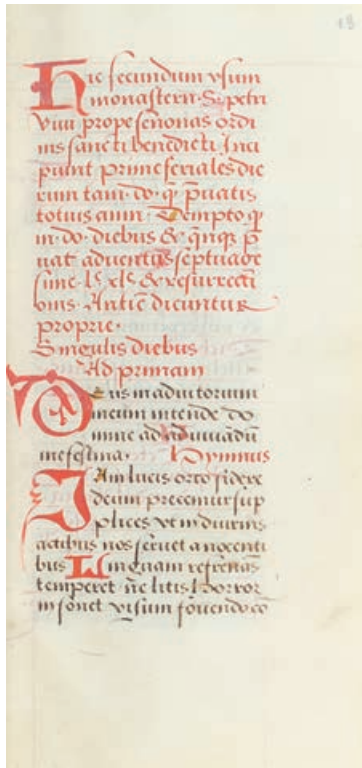 13
Hic secundum vsum
monasterii. S. petri
viui prope senonas ordi
nis sancti benedicti. Inci
piunt prime feriales die
rum tam. do. q̄ p̄uatis
totius anni. Dempto q̄
in. do. diebus & q̄nqȝ p̄
uat aduentus septuage
sime. lˢ. xlᵉ. & resurrecti
onis. Antiē dicuntur
proprie.
Singulis diebus
Ad primam
Deus in adiutorium
meum intende do
mine ad adiuuādū
me festina. Hymnus
Iam lucis orto sidere
deum precemur sup
plices vt in diurnis
actibus nos seruet a nocenti
bus Linguam refrenās
temperet ne litis horror
insonet visum fouendo co